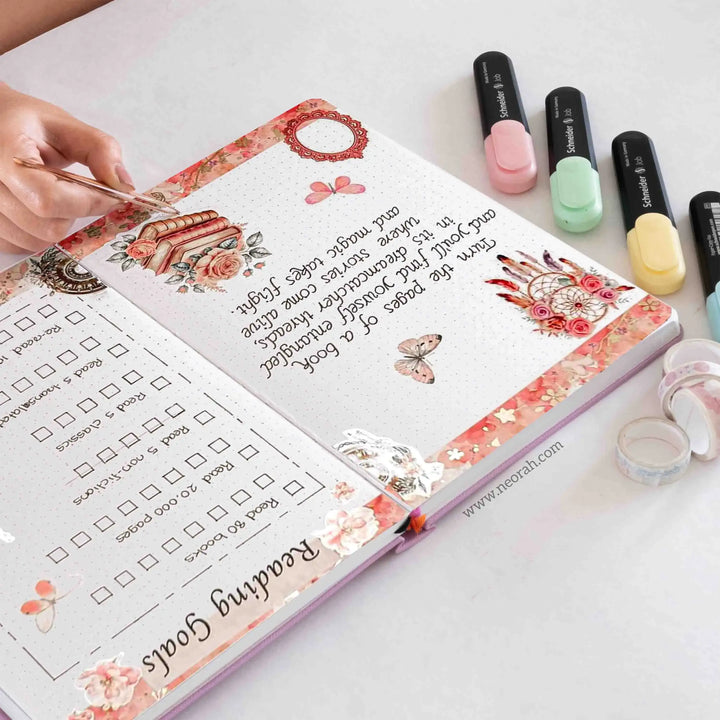 Reading Goals
Read 80 books
Read 20,000 pages
Read 5 non-fictions
Read 5 classics
Read 5
Re-read 10
Turn the pages of a book
and you'll find yourself entangled
in it's dreamcatcher threads,
where stories come alive
and magic takes flight.
Schneider Job
Schneider Job
Schneider Job
www.neorah.com